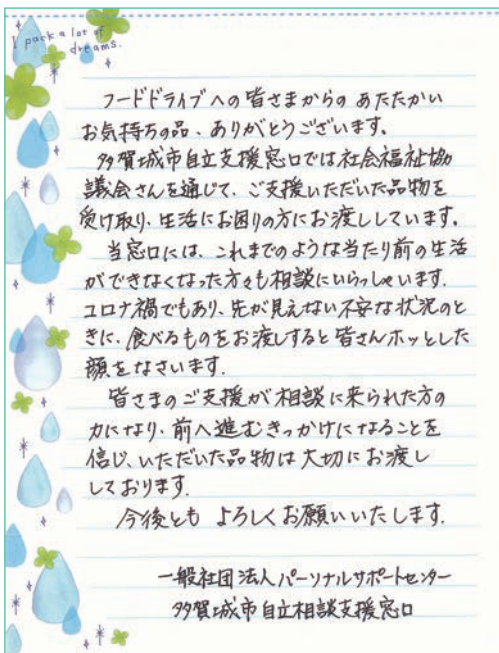 I pack a lot of
dreams.
フードドライブへの皆さまからの あたたかい
お気持ちの品、ありがとうございます。
多賀城市自立支援窓口では社会福祉協
議会さんを通じて、ご支援いただいた品物を
受け取り、生活にお困りの方にお渡ししています。
当窓口には、これまでのような当たり前の生活
ができなくなった方々も相談にいらっしゃいます。
コロナ禍でもあり、先が見えない不安な状況のと
きに、食べるものをお渡しすると皆さんホッとした
顔をなさいます。
皆さまのご支援が相談に来られた方の
力になり、前へ進むきっかけになることを
信じ、いただいた品物は大切にお渡し
しております。
今後とも よろしくお願いいたします。
一般社団法人パーソナルサポートセンター
多賀城市自立相談支援窓口